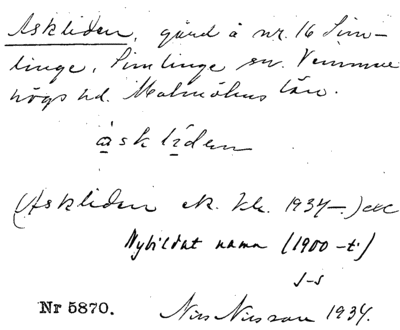 Askliden, gård å nr. 16 Sim-
linge, Simlinge sn. Vemmen
högs hd. Malmöhus län.
àsk líden
(Askliden ek. kk. 1934-.)
Nybildat namn (1900-t.)
J-s
Nr 5870.
Nils Nilsson 1934.